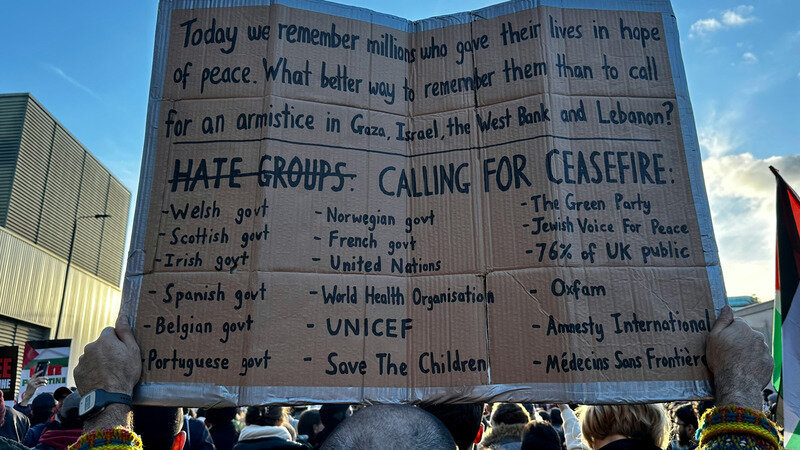 Today we remember millions who gave their lives in hope
of peace. What better way to remember them than to call
for an armistice in Gaza, Israel, the West Bank and Lebanon?
HATE GROUPS: CALLING FOR CEASEFIRE:
- Welsh govt
- Scottish govt
- Irish govt
- Spanish govt
- Belgian govt
Portuguese govt
- Norwegian govt
- French govt
- United Nations
- World Health Organisation
- UNICEF
- Save The Children
- The Green Party
- Jewish Voice For Peace
- 76% of UK public
- Oxfam
- Amnesty International
- Médecins Sans Frontière